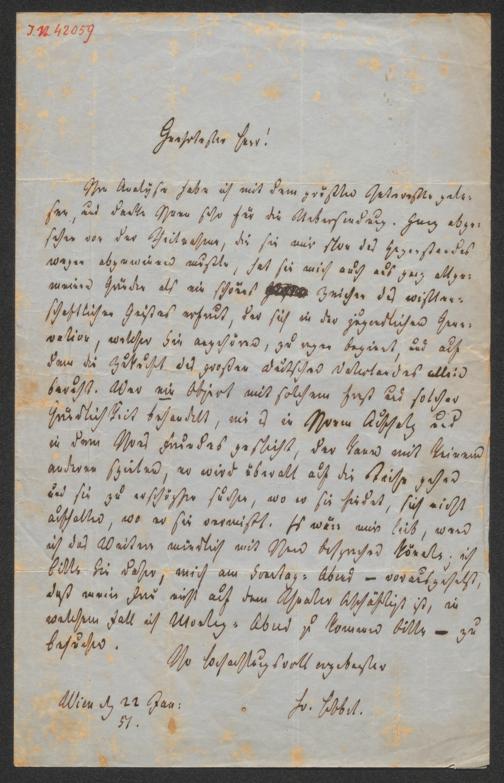 I.N. 42059
Geehrtester Herr!
Ihre Analyse habe ich mit dem größten Interesse gele-
sen, und danke Ihnen sehr für die Uebersendung. Ganz abge-
sehen von der Theilnahme, die sie mir schon des Gegenstandes
wegen abgewinnen mußte, hat sie mich auch aus ganz allge-
meinen Gründen als ein schönes Zeichen des wissen-
schaftlichen Geistes erfreut, der sich in der jugendlichen Gene-
ration, welcher Sie angehören, zu regen beginnt, und auf
dem die Zukunft des großen deutschen Vaterlandes allein
beruht. Wer ein Object mit solchem Ernst und solcher
Gründlichkeit behandelt, wie es in Ihrem Aufsatz und
in dem Ihres Freundes geschieht, der kann mit keinem
anderen spielen, er wird überall auf die Sache gehen
und sie zu erschöpfen suchen, wo er sie findet, sich nicht
aufhalten, wo er sie vermißt. Es wäre mir lieb, wenn
ich das Weitere mündlich mit Ihnen besprechen könnte; ich
bitte Sie daher, mich am Sonntag-Abend — vorausgesetzt,
daß meine Frau nicht auf dem Theater beschäftigt ist, in
welchem Fall ich Montag-Abend zu kommen bitte — zu
besuchen.
Ihr hochachtungsvoll ergebenster
Wien d 22 Jan:
51.
Fr. Hebbel.